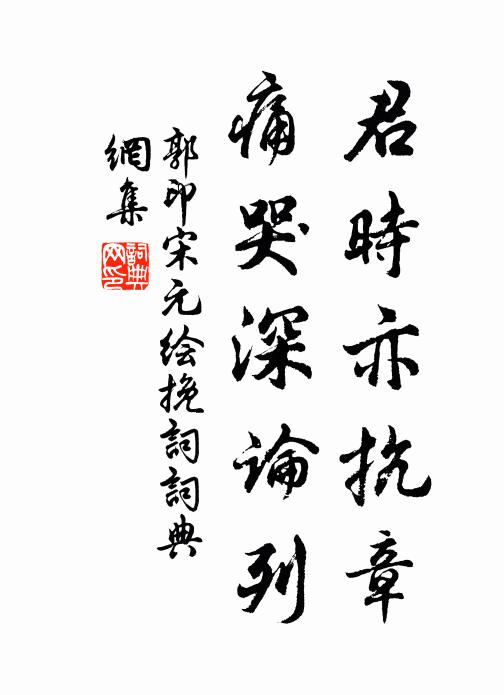 君時亦抗章
痛哭深論列
郭印宋元绘挽詞詞典
網集
詞典网印